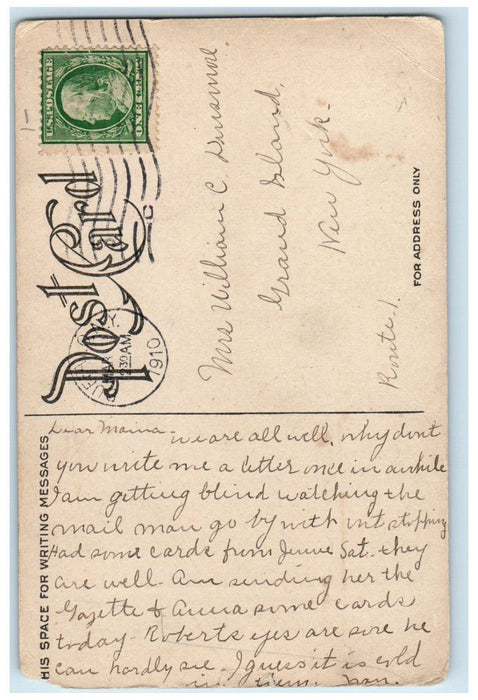 U.S. POSTAGE
ONE CENT
Post Card
N.Y.
MAR
30 AM
1910
Mrs William C. Dinsmore.
Grand Island,
New York.
Route 1.
FOR ADDRESS ONLY
HIS SPACE FOR WRITING MESSAGES
Dear Mama - we are all well, why dont
you write me a letter once in awhile
I am getting blind watching the
mail man go by with out stopping
Had some cards from Jennie Sat. they
are well. Am sending her the
Gazette & Anna some cards
today. Roberts yes are sore he
can hardly see. I guess it is cold
in them. Nan.